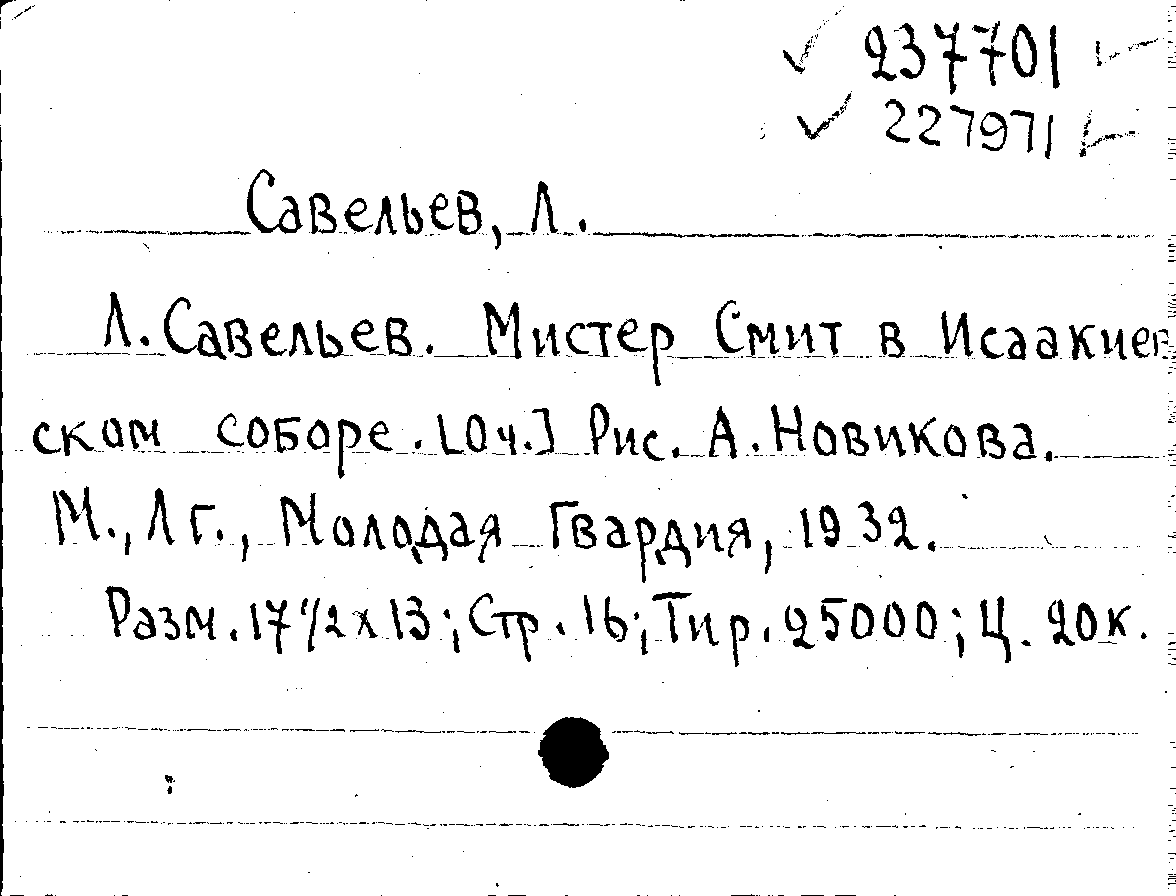 ✓ 237701 ✓
✓ 227971 ✓
Савельев, Л.
Л. Савельев. Мистер Смит в Исаакиев
ском соборе. [Оч.] Рис. А. Новикова.
М., Лг., Молодая Гвардия, 1932.
Разм. 17 1/2 х 13; Стр. 16; Тир. 25000; Ц. 20к.